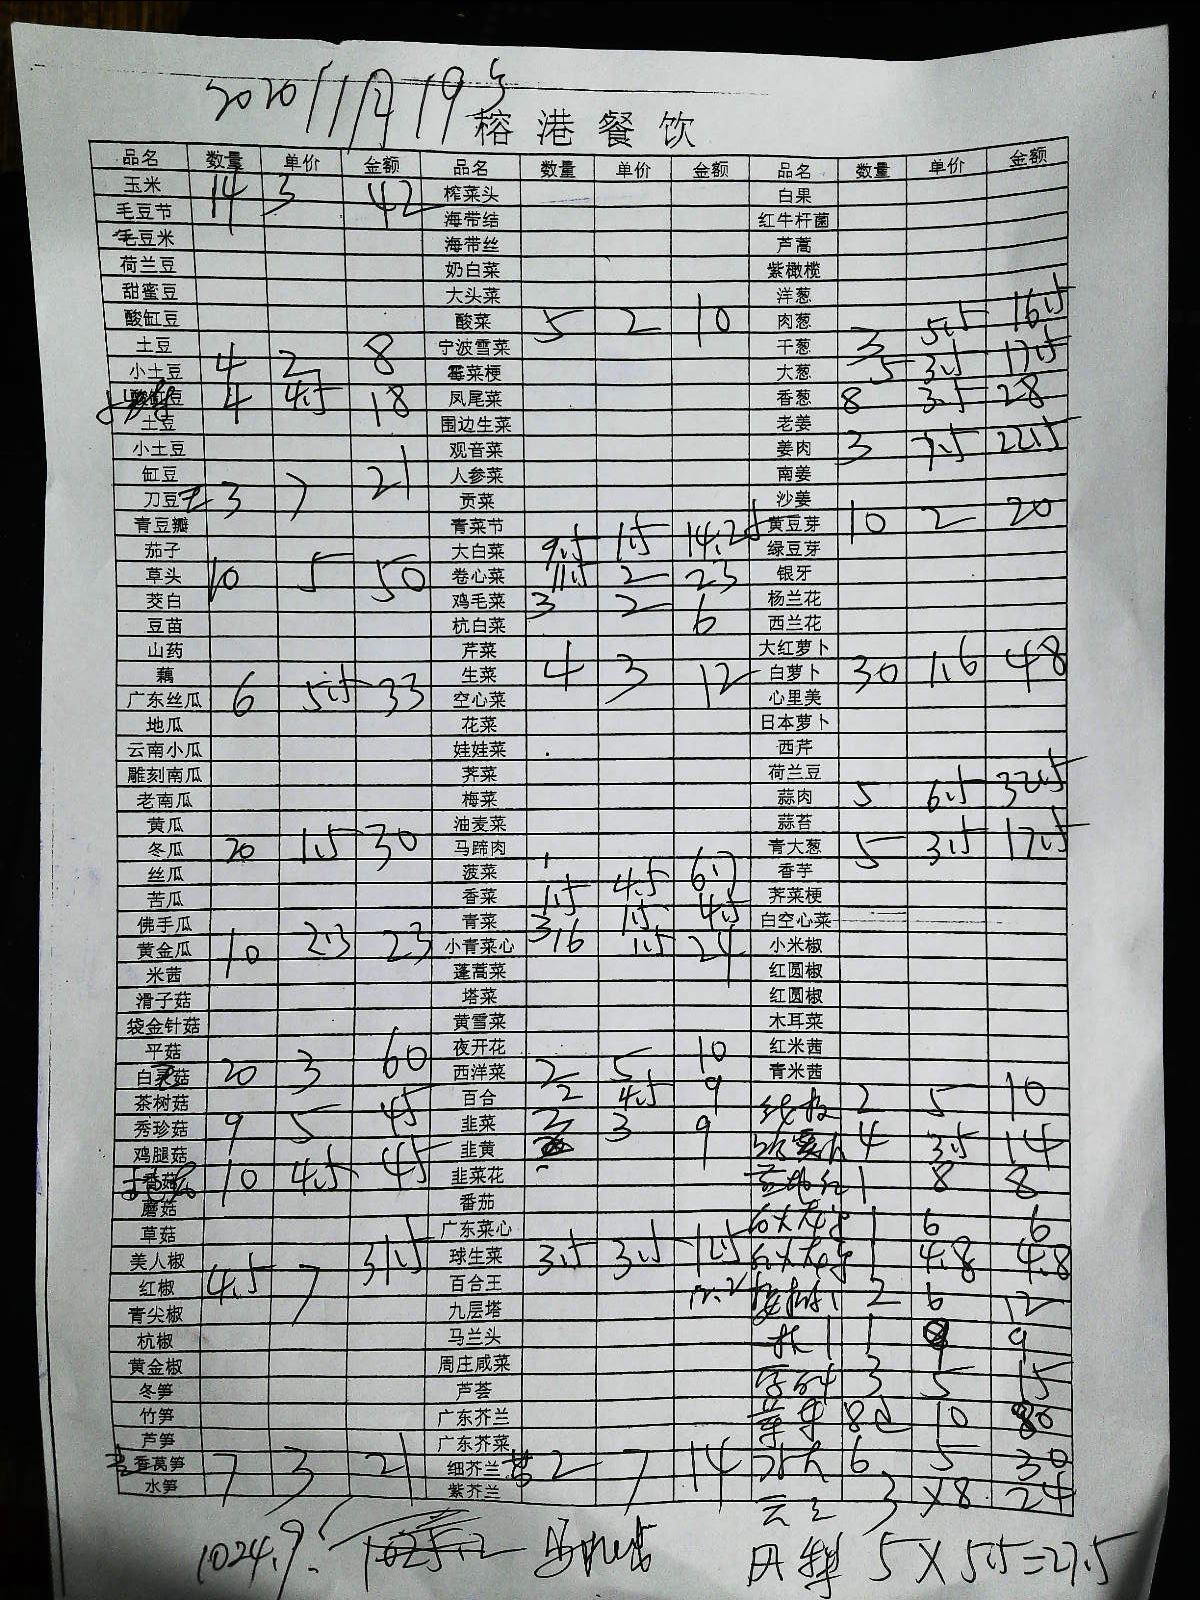 2020 11月19号
榕港餐饮
品名 数量 单价 金额 品名 数量 单价 金额 品名 数量 单价 金额
玉米 14 3 42 榨菜头 白果
毛豆节 海带结 红牛杆菌
毛豆米 海带丝 芦蒿
荷兰豆 奶白菜 紫橄榄
甜蜜豆 大头菜 洋葱
酸缸豆 酸菜 5 2 10 肉葱 3 5.5 16.5
土豆 4 2 8 宁波雪菜 干葱 5 3.5 17.5
小土豆 霉菜梗 大葱
4 4.5 18 凤尾菜 香葱 8 3.5 28
土豆 围边生菜 老姜
小土豆 观音菜 姜肉 3 7.5 22.5
缸豆 人参菜 南姜
刀豆 3 7 21 贡菜 沙姜
青豆瓣 青菜节 黄豆芽 10 2 20
茄子 大白菜 9.5 1.5 14.25 绿豆芽
草头 10 5 50 卷心菜 11.5 2 23 银牙
茭白 鸡毛菜 3 2 6 杨兰花
豆苗 杭白菜 西兰花
山药 芹菜 大红萝卜
藕 生菜 4 3 12 白萝卜 30 1.6 48
广东丝瓜 6 5.5 33 空心菜 心里美
地瓜 花菜 日本萝卜
云南小瓜 娃娃菜 西芹
雕刻南瓜 荠菜 荷兰豆
老南瓜 梅菜 蒜肉 5 6.5 32.5
黄瓜 油麦菜 蒜苔
冬瓜 20 1.5 30 马蹄肉 青大葱 5 3.5 17.5
丝瓜 菠菜 香芋
苦瓜 香菜 1.5 4.5 荠菜梗
佛手瓜 青菜 3 1.5 4.5 白空心菜
黄金瓜 10 2.3 23 小青菜心 16 1.5 24 小米椒
米茜 蓬蒿菜 红圆椒
滑子菇 塔菜 红圆椒
袋金针菇 黄雪菜 木耳菜
平菇 夜开花 红米茜
白灵菇 20 3 60 西洋菜 2 5 10 青米茜
茶树菇 百合 2 4.5 9 2 5 10
秀珍菇 9 5 45 韭菜 3 3 9 4 3.5 14
鸡腿菇 韭黄
香菇 10 4.5 45 韭菜花 1 8 8
蘑菇 番茄
草菇 广东菜心 1 6 6
美人椒 球生菜 3.5 3.5 1 4.8 4.8
红椒 4.5 7 31.5 百合王 2 6 12
青尖椒 九层塔
杭椒 马兰头 1 9
黄金椒 周庄咸菜
冬笋 芦荟 3 5 15
竹笋 广东芥兰 8 10 80
芦笋 广东芥菜
香莴笋 7 3 21 细芥兰 2 7 14 6 5 30
水笋 紫芥兰 3 ×8 24
1024.9 5×5.5=27.5